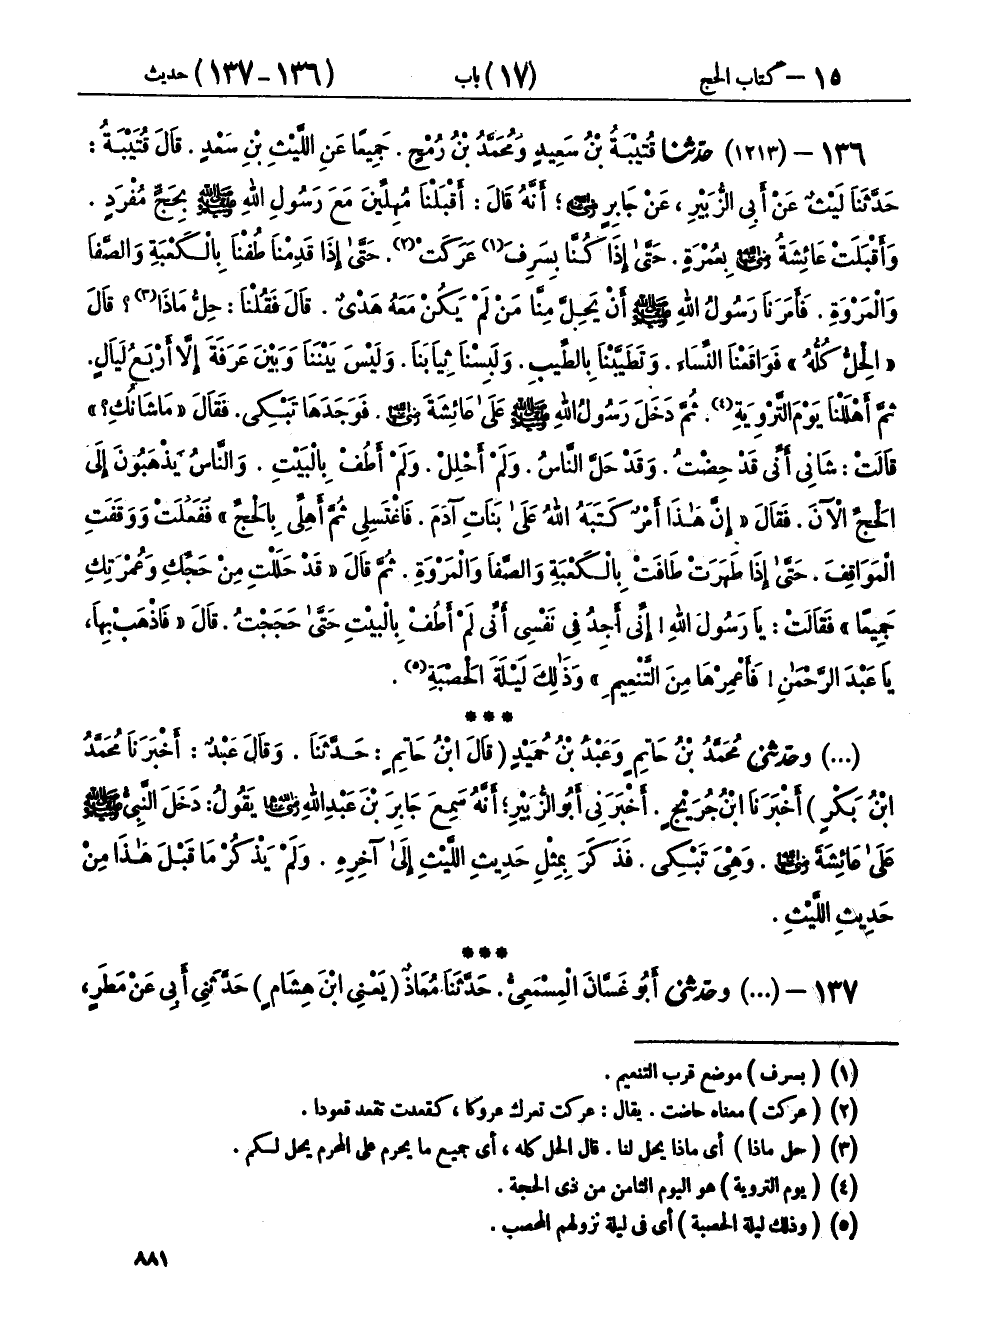 ١٥ – كتاب الحج (١٧) باب (١٣٦ – ١٣٧) حديث
١٣٦ – (١٢١٣) حَدَّثَنَا قُتَيْبَةُ بْنُ سَعِيدٍ وَمُحَمَّدُ بْنُ رُمْحٍ . جَمِيعًا عَنِ اللَّيْثِ بْنِ سَعْدٍ . قَالَ قُتَيْبَةُ :
حَدَّثَنَا لَيْثٌ عَنْ أَبِى الزُّبَيْرِ ، عَنْ جَابِرٍ رضي الله عنه ؛ أَنَّهُ قَالَ : أَقْبَلْنَا مُهِلِّينَ مَعَ رَسُولِ اللهِ ﷺ بِحَجٍّ مُفْرَدٍ .
وَأَقْبَلَتْ عَائِشَةُ رضي الله عنها بِعُمْرَةٍ . حَتَّىٰ إِذَا كُنَّا بِسَرِفَ(١) عَرَكَتْ(٢) . حَتَّىٰ إِذَا قَدِمْنَا طُفْنَا بِالْكَعْبَةِ وَالصَّفَا
وَالْمَرْوَةِ . فَأَمَرَنَا رَسُولُ اللهِ ﷺ أَنْ يَحِلَّ مِنَّا مَنْ لَمْ يَكُنْ مَعَهُ هَدْىٌ . قَالَ فَقُلْنَا : حِلُّ مَاذَا(٣) ؟ قَالَ
« الْحِلُّ كُلُّهُ » فَوَاقَعْنَا النِّسَاء . وَتَطَيَّبْنَا بِالطِّيبِ . وَلَبِسْنَا ثِيَابَنَا . وَلَيْسَ بَيْنَنَا وَبَيْنَ عَرَفَةَ إِلَّا أَرْبَعُ لَيَالٍ.
ثُمَّ أَهْلَلْنَا يَوْمَ التَّرْوِيَةِ(٤) . ثُمَّ دَخَلَ رَسُولُ اللهِ ﷺ عَلَىٰ عَائِشَةَ رضي الله عنها . فَوَجَدَهَا تَبْكِى . فَقَالَ « مَا شَانُكِ؟ »
قَالَتْ : شَانِى أَنِّى قَدْ حِضْتُ . وَقَدْ حَلَّ النَّاسُ . وَلَمْ أَحْلِلْ . وَلَمْ أَطُفْ بِالْبَيْتِ . وَالنَّاسُ يَذْهَبُونَ إِلَى
الْحَجِّ الْآنَ . فَقَالَ « إِنَّ هَـٰذَا أَمْرٌ كَتَبَهُ اللهُ عَلَىٰ بَنَاتِ آدَمَ . فَاغْتَسِلِى ثُمَّ أَهِلِّى بِالْحَجِّ » فَفَعَلَتْ وَوَقَفَتِ
الْمَوَاقِفَ . حَتَّىٰ إِذَا طَهَرَتْ طَافَتْ بِالْكَعْبَةِ وَالصَّفَا وَالْمَرْوَةِ . ثُمَّ قَالَ « قَدْ حَلَلْتِ مِنْ حَجِّكِ وَعُمْرَتِكِ
جَمِيعًا » فَقَالَتْ : يَا رَسُولَ اللهِ ! إِنِّى أَجِدُ فِى نَفْسِى أَنِّى لَمْ أَطُفْ بِالْبَيْتِ حَتَّىٰ حَجَجْتُ . قَالَ « فَاذْهَبْ بِهَا،
يَا عَبْدَ الرَّحْمَٰنِ ! فَأَعْمِرْهَا مِنَ التَّنْعِيمِ » وَذَٰلِكَ لَيْلَةَ الْحَصْبَةِ(٥) .
***
(...) وحَدَّثَنِى مُحَمَّدُ بْنُ حَاتِمٍ وَعَبْدُ بْنُ حُمَيْدٍ ( قَالَ ابْنُ حَاتِمٍ : حَدَّثَنَا . وَقَالَ عَبْدٌ : أَخْبَرَنَا مُحَمَّدُ
ابْنُ بَكْرٍ ) أَخْبَرَنَا ابْنُ جُرَيْجٍ . أَخْبَرَنِى أَبُو الزُّبَيْرِ؛ أَنَّهُ سَمِعَ جَابِرَ بْنَ عَبْدِ اللهِ رضي الله عنهما يَقُولُ: دَخَلَ النَّبِىُّ ﷺ
عَلَىٰ عَائِشَةَ رضي الله عنها . وَهْىَ تَبْكِى . فَذَكَرَ بِمِثْلِ حَدِيثِ اللَّيْثِ إِلَىٰ آخِرِهِ . وَلَمْ يَذْكُرْ مَا قَبْلَ هَـٰذَا مِنْ
حَدِيثِ اللَّيْثِ .
***
١٣٧ – (...) وحَدَّثَنِى أَبُو غَسَّانَ الْمِسْمَعِىُّ . حَدَّثَنَا مُعَاذٌ ( يَعْنِى ابْنَ هِشَامٍ ) حَدَّثَنِى أَبِى عَنْ مَطَرٍ،
(١) ( بسرف ) موضع قرب التنعيم .
(٢) ( عركت ) معناه حاضت . يقال : عركت تعرك عروكا ، كقعدت تقعد قعودا .
(٣) ( حل ماذا ) أى ماذا يحل لنا . قال الحل كله ، أى جميع ما يحرم على المحرم يحل لكم .
(٤) ( يوم التروية ) هو اليوم الثامن من ذى الحجة .
(٥) ( وذلك ليلة الحصبة ) أى فى ليلة نزولهم المحصب .
٨٨١